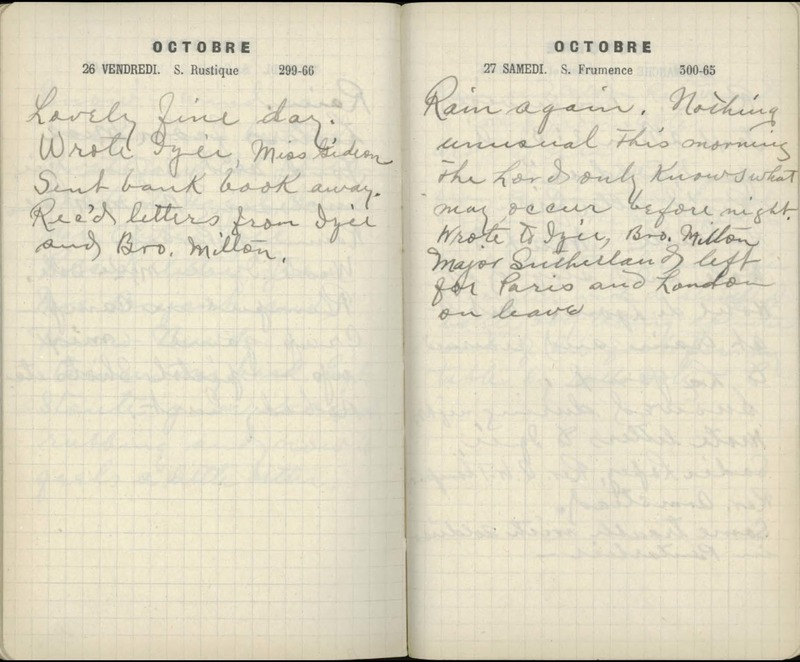 OCTOBRE
26 VENDREDI. S. Rustique 299-66
Lovely fine day.
Wrote Izie, Miss Gideon
Sent bank book away.
Rec'd letters from Izie
and Bro. Milton.
OCTOBRE
27 SAMEDI. S. Frumence 300-65
Rain again. Nothing
unusual this morning
the Lord only knows what
may occur before night.
Wrote to Izie, Bro. Milton
Major Sutherland left
for Paris and London
on leave